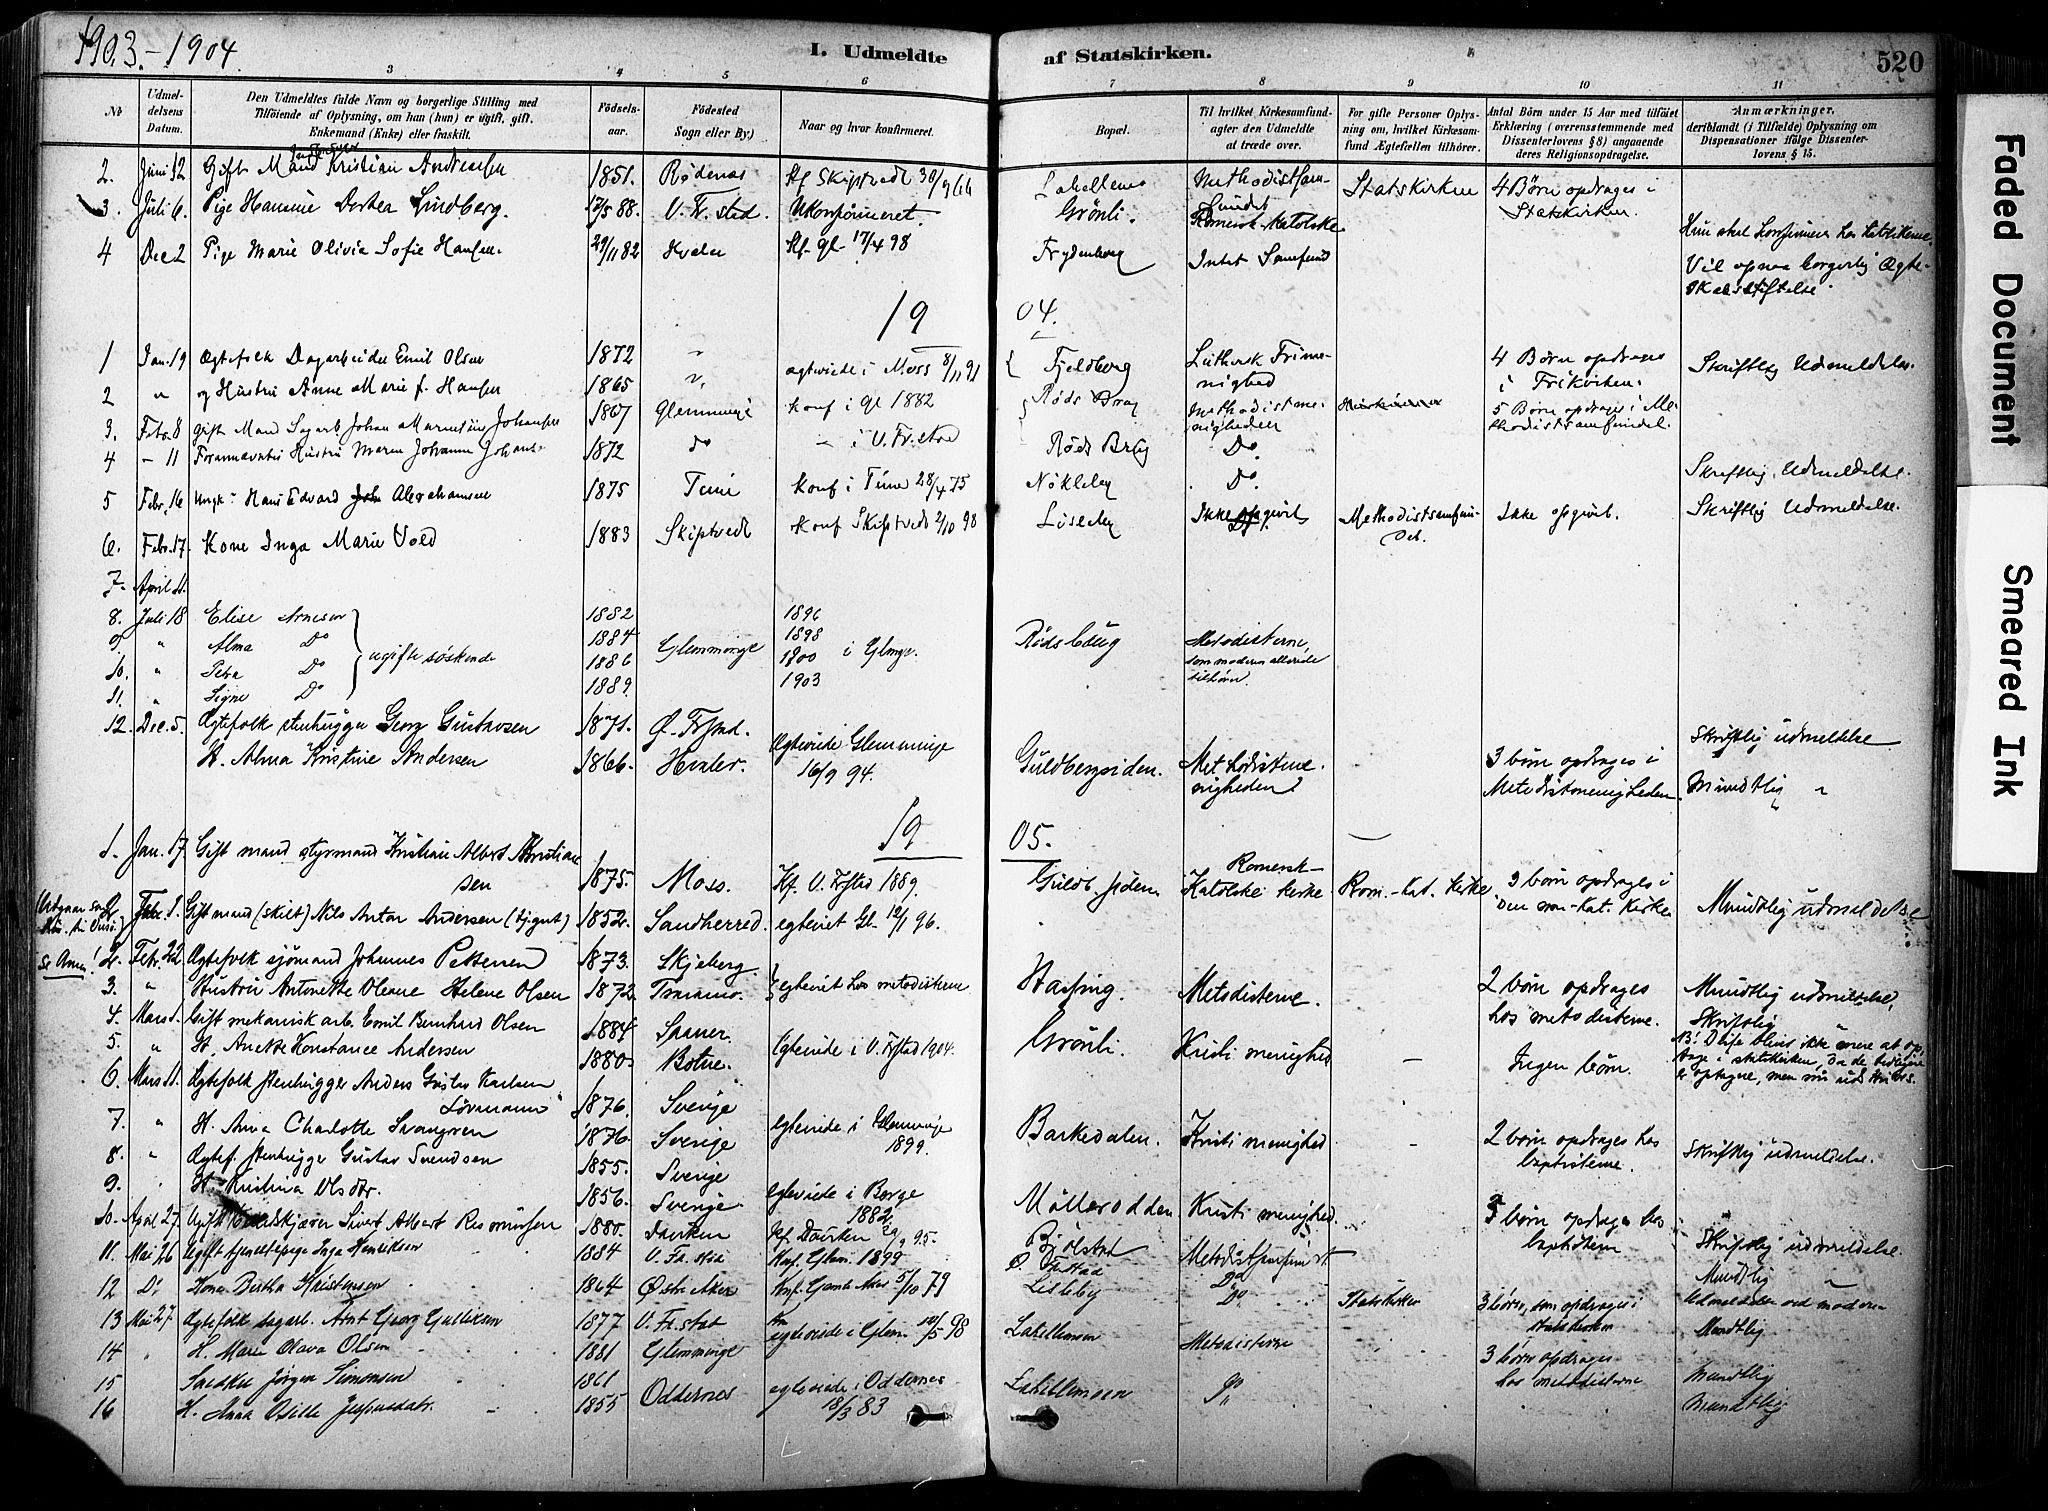 1903.-1904.
I. Udmeldte af Statskirken.
520
3 4 5 6 7 8 9 10 11
No
Udmeldelsens Datum.
Den Udmeldtes fulde Navn og borgerlige Stilling med
Tilföiende af Oplysning, om han (hun) er ugift, gift,
Enkemand (Enke) eller fraskilt.
Födsels-
aar.
Födested
Sogn eller By)
Naar og hvor konfirmeret.
Bopæl.
Til hvilket Kirkesamfund-
agter den Udmeldte
at træde over.
For gifte Personer Oplys-
ning om, hvilket Kirkesam-
fund Ægtefællen tilhörer.
Antal Börn under 15 Aar med tilföiet
Erklæring (overensstemmende med
Dissenterlovens § 8) angaaende
deres Religionsopdragelse.
Anmærkninger,
deriblandt (i Tilfælde) Oplysning om
Dispensationer ifölge Dissenter-
lovens § 15.
2. Juni 12 Gift Mand Kristian Andresen 1851. Rødenæs Kf Skiptvedt 30/9 66 Lahellemo Methodistsam-fundet Statskirken 4 Børn opdrages i Statskirken.
3. Juli 6. Pige Hannie Dortea Lindberg. 17/5 88. V. Fr.sted. Ukonfirmeret. Grönli. Romersk-Katolske Hun skal konfirmeres hos katolikerne.
4 Dec 2 Pige Marie Olivia Sofie Hansen. 29/11 82 Hvaler Kf. Gl. 17/4 98 Frydenberg Intet Samfund Vil opnaa borgerlig Ægte-skabsstiftelse.
1904.
1 Jan. 19 Ægtefolk Dagarbeider Emil Olsen 1872 " ægteviede i Moss 8/11 91 Fjeldberg Luthersk Frime-nighed 4 Børn opdrages i Frikirken. Skriftlig Udmeldelse.
2 " og Hustru Anne Marie f. Hansen 1865 "
3. Febr. 8 gift Mand Sagarb. Johan Marentius Johansen 1867 Glemminge konf i Gl 1882 Røds Brug Methodistme-nigheden 5 Børn opdrages i Me-thodistsamfundet.
4 - 11 Forannævntes Hustru Maren Johanne Johans- 1872 do " i V. Fr.stad Røds Brug Do.
5 Febr. 16 Ungk. Hans Edvard Abrahamsen 1875 Tune Konf i Tune 28/4 75 Nökleby Do. Skriftlig Udmeldelse.
6. Febr. 17. Kone Inga Marie Vold 1883 Skiptvedt Konf Skiptvedt 2/10 98 Liseby Ikke opgivet Methodistsamfun-det. Ikke opgivet. Skriftlig Udmeldelse.
7. April 11.
8. Juli 18 Elise Arnesen 1882 1896
9. " Alma Do 1884 1898
10. " Petra Do 1886 1900
11. " Signe Do 1889. 1903
ugifte søskende Glemminge i Glmge. Røds brug Metodisterne, som moderen allerede tilhører.
12. Dec. 5. Ægtefolk stenhugger Georg Gustavsen 1871. Ø. Frstad. Ægteviede Glemminge 16/9 94. Guldbergsiden. Methodistme-nigheden 3 børn opdrages i Metodistmenigheden. Skriftlig udmeldelse
H. Alma Kristine Andersen 1866. Hvaler. Mundtlig "
1905.
1. Jan. 17 Gift mand styrmand Kristian Albert Kristian-sen 1875. Moss. Kf. V. Frstad 1889. Guldb.siden Romersk-Katolske kirke Rom.-Kat. Kirke 3 børn opdrages i den rom-Kat. Kirke Mundtlig udmeldelse
Febr. 1. Gift mand (skilt) Nils Anton Andersen 1852. Sandherred. egteviet Gl. 12/1 96.
2. Febr. 22 Ægtefolk sjømand Johannes Pettersen 1873. Skjeberg. egteviet hos metodisterne Hasting. Metodisterne. 2 børn opdrages hos metodisterne. Mundtlig udmeldelse,
3. " Hustru Antonette Oleane Helene Olsen 1872. Tromsø.
4. Mars 1. Gift mekanisk arb. Emil Bernhard Olsen 1884 Spauer. Egteviede i V. Frstad 1904. Grönli. Kristi menighed - Ingen børn. Skriftlig
5. " H. Anette Konstance Andersen 1880. Botne.
6. Mars 11. Ægtefolk stenhugger Anders Gustav Karlsen 1876. Sverige egteviede i Glemminge 1899. Barkedalen. Kristi menighed - 2 børn opdrages hos baptisterne. Skriftlig udmeldelse.
7. " H. Anna Charlotte Svangren 1876. Sverige
8. " Ægtef. stenhugger Gustav Svendsen 1855. Sverige egteviede i Borge 1882. Møllerodden Kristi menighed. 3 børn opdrages hos baptisterne Skriftlig udmeldelse.
9. " H. Kristina Olsdtr. 1856. Sverige
10. April 27. Ugift Sivert Albert Rasmussen 1880. Davik Kf Daviken 29/9 95. Bjølstad Metodistsamfundet Mundtlig "
11. Mai 26 Ugift tjenestepige Inga Henriksen 1884 V. Fr.stad Konf. Glem. 1899 Ø. Frstad Do
12 Do Kone Bertha Kristensen 1864 Østre Aker Konf. Gamle Aker 5/10 79 Lisleby Do. Statskirken 3 børn, som opdrages i statskirken
13 Mai 27. Ægtefolk dagarb. Arnt Georg Gulliksen 1877 V. Fr.stad egteviede i Glem. 18/5 98 Lahellemoen Metodisterne 3 børn opdrages hos metodisterne Mundtlig
14 " H. Marie Olava Olsen 1881 Glemminge
15 Snedker Jørgen Simonsen 1861 Oddernes egteviede i Oddernes 18/3 83 Lahellemoen Do Mundtlig
16 H. Anna Osille Jespersdatr. 1855 Mundtlig
Faded Document
Smeared Ink